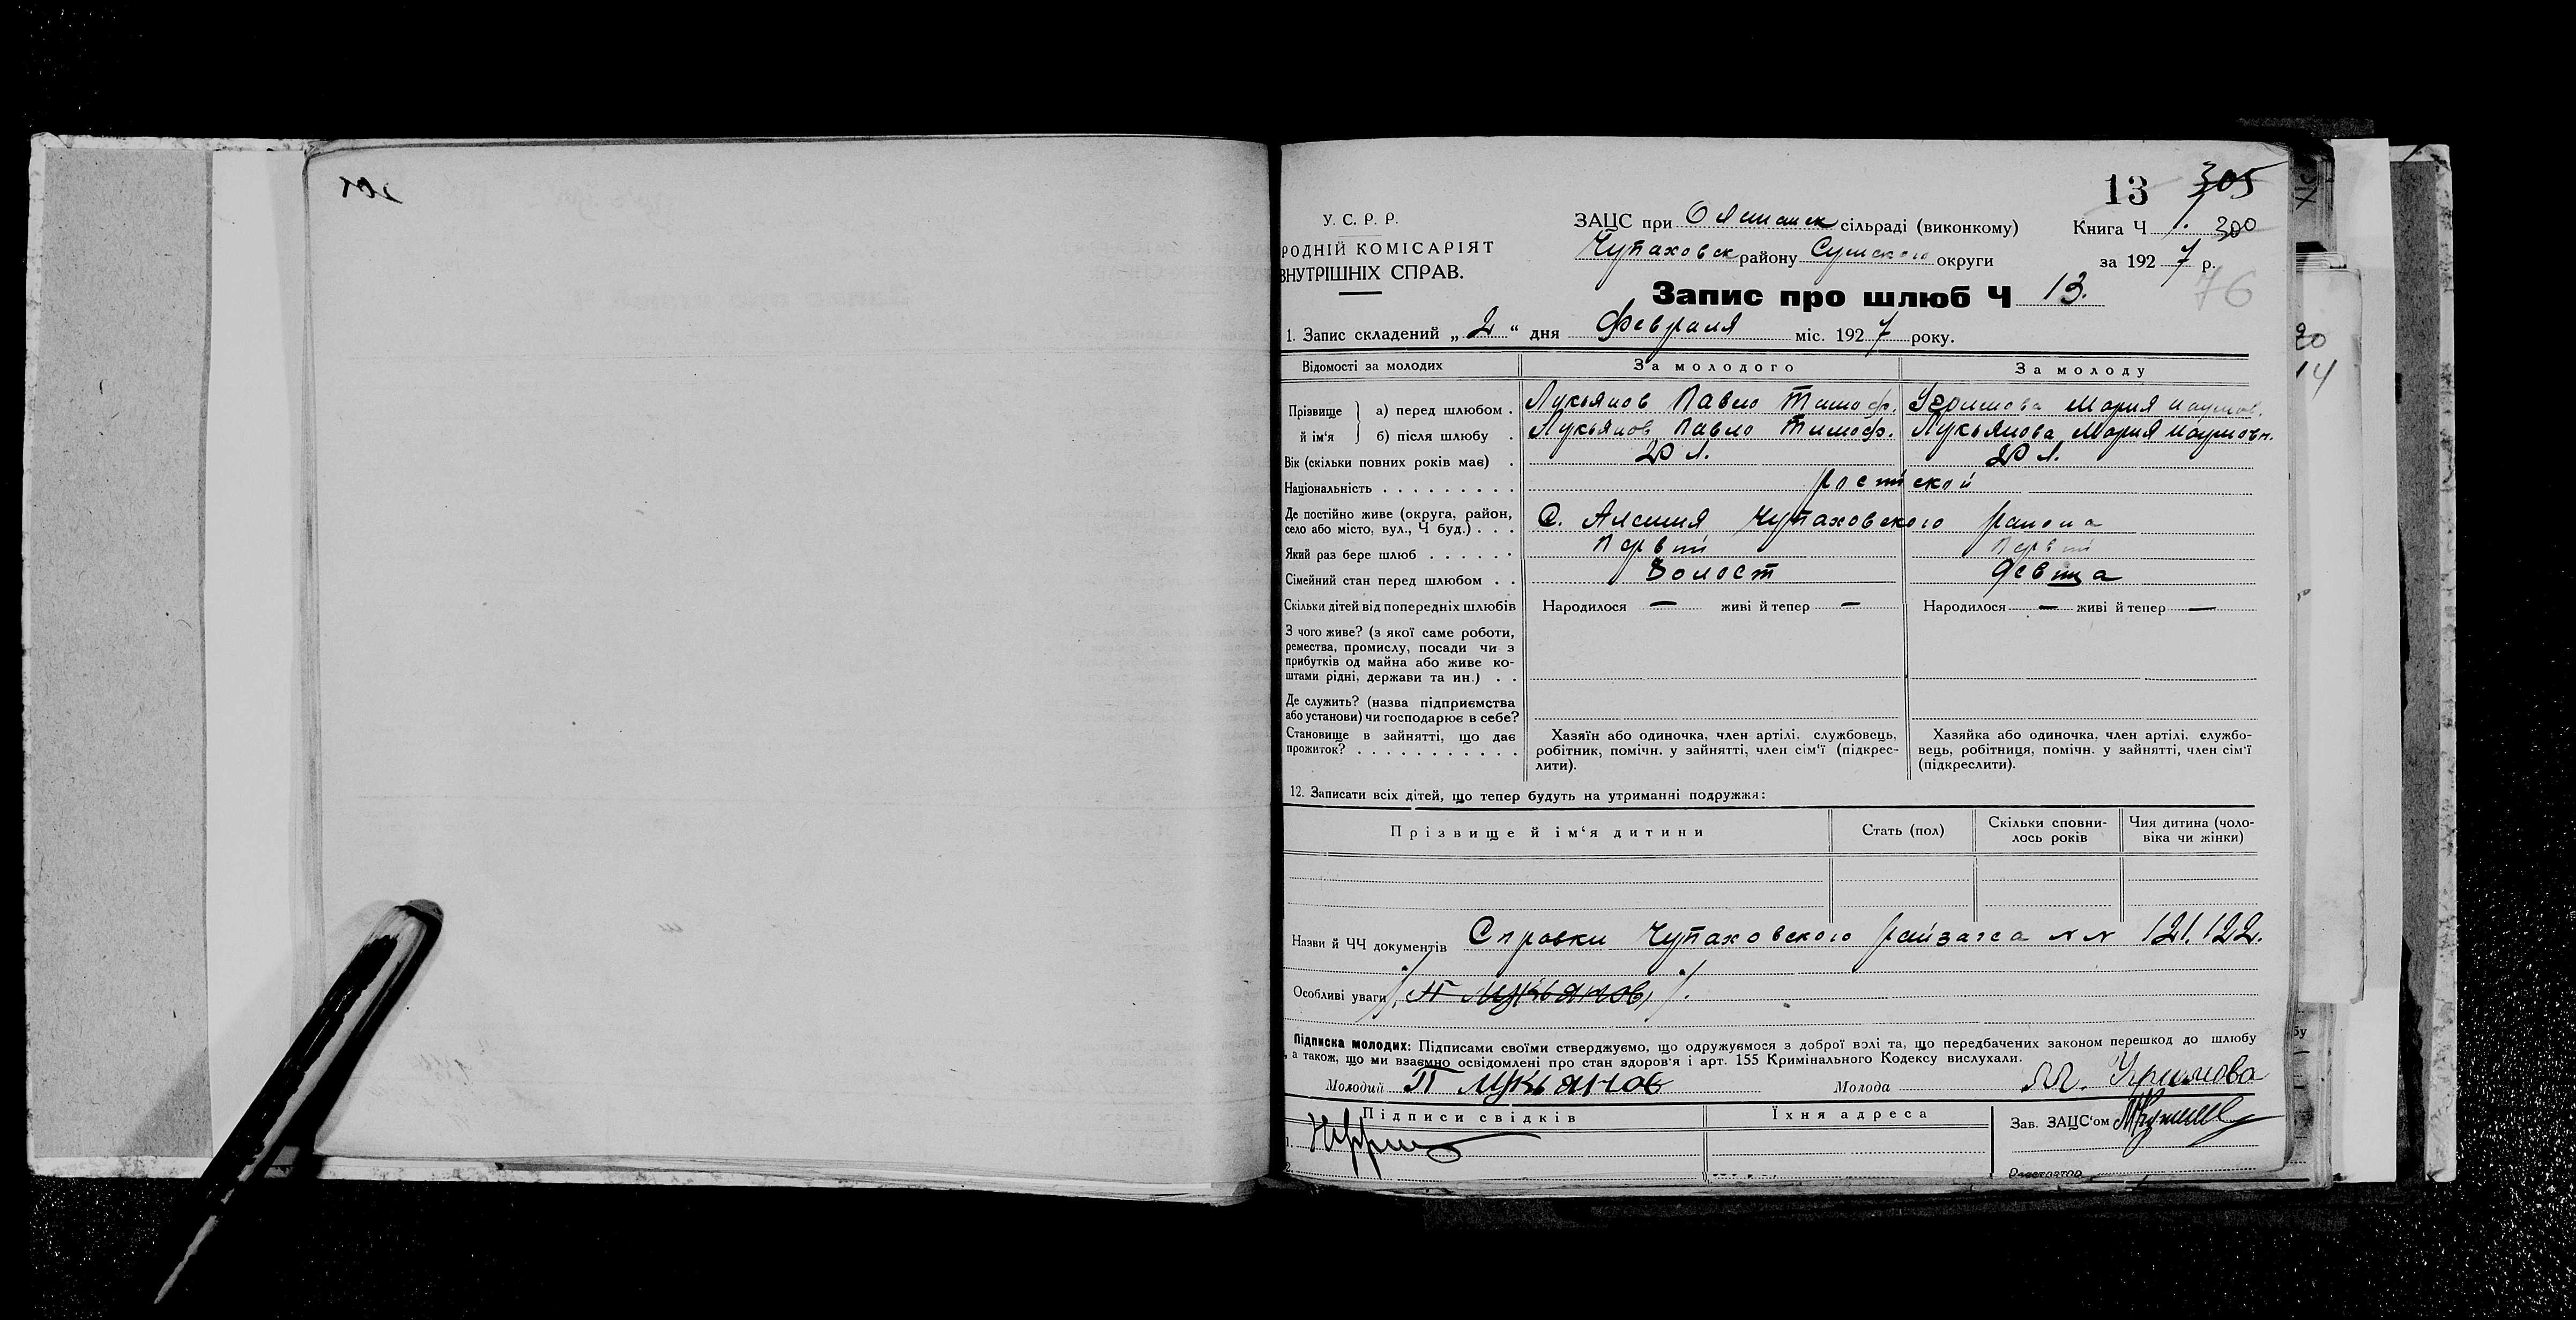 13 305
У. С. Р. Р.
РОДНІЙ КОМІСАРІЯТ
ВНУТРІШНІХ СПРАВ.
ЗАЦС при Олешанск сільраді (виконкому)
Чупаховск району Сумского округи
Книга Ч 1. 300
за 1927 р.
76
Запис про шлюб Ч 13.
1. Запис складений „2“ дня Февраля міс. 1927 року.
Відомості за молодих За молодого За молоду
Прізвище й ім'я а) перед шлюбом . Лукьянов Павло Тимоф. Угримова Мария Наумов.
б) після шлюбу . Лукьянов Павло Тимоф. Лукьянова Мария Наумовн.
Вік (скільки повних років має) . 20 л. 20 л.
Національність . . . . . . . . .
Де постійно живе (округа, район,
село або місто, вул., Ч буд.) . . . С. Алешня Чупаховского района
Який раз бере шлюб . . . . . . Первий Первий
Сімейний стан перед шлюбом . . Холост Девица
Скільки дітей від попередніх шлюбів Народилося — живі й тепер — Народилося — живі й тепер —
З чого живе? (з якої саме роботи,
ремества, промислу, посади чи з
прибутків од майна або живе ко-
штами рідні, держави та ин.) . .
Де служить? (назва підприємства
або установи) чи господарює в себе?
Становище в зайнятті, що дає
прожиток? . . . . . . . . . . .
Хазяїн або одиночка, член артілі, службовець,
робітник, помічн. у зайнятті, член сім'ї (підкрес-
лити).
Хазяйка або одиночка, член артілі, службо-
вець, робітниця, помічн. у зайнятті, член сім'ї
(підкреслити).
12. Записати всіх дітей, що тепер будуть на утриманні подружжя:
Прізвище й ім'я дитини Стать (пол) Скільки сповни-
лось років Чия дитина (чоло-
віка чи жінки)
Назви й ЧЧ документів Справки Чупаховского райзагса NN 121. 122.
Особливі уваги П Лукьянов
Підписка молодих: Підписами своїми стверджуємо, що одружуємося з доброї волі та, що передбачених законом перешкод до шлюбу
, а також, що ми взаємно освідомлені про стан здоров'я і арт. 155 Кримінального Кодексу вислухали.
Молодий П Лукьянов Молода М. Угримова
Підписи свідків Їхня адреса Зав. ЗАЦС'ом
1.
2.